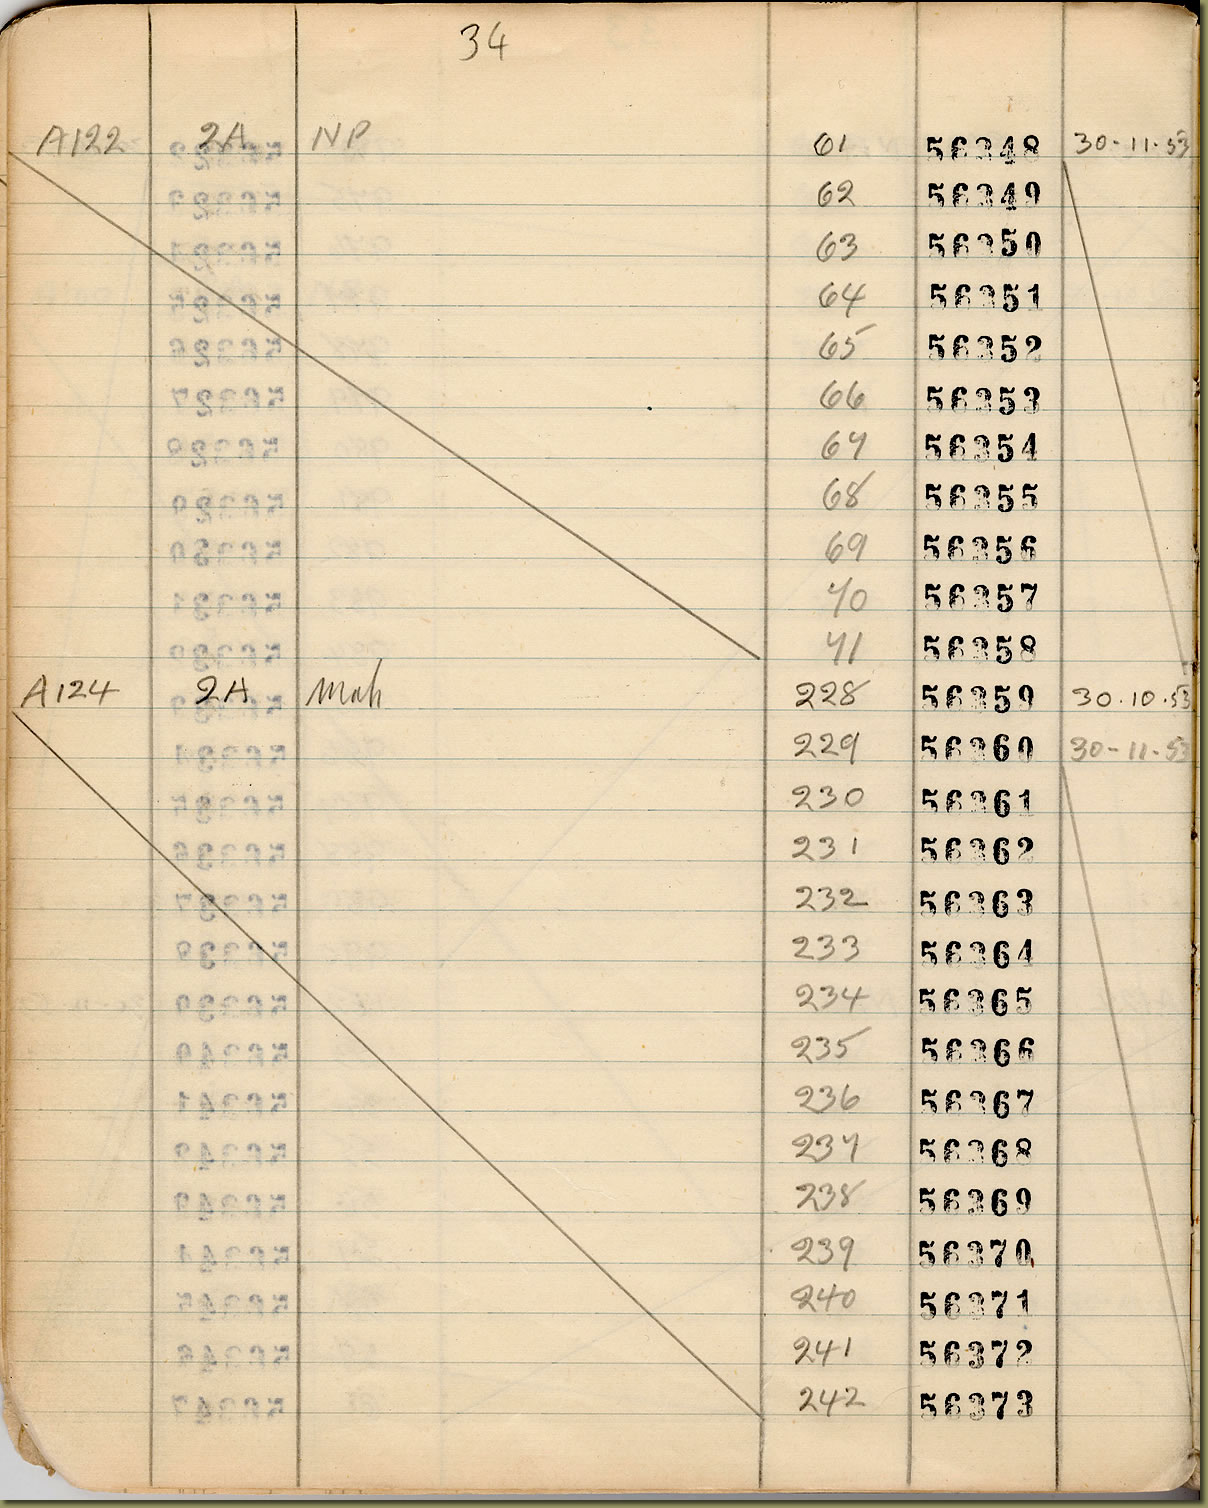 34
A122 2A NP 61 56348 30-11-53
62 56349
63 56350
64 56351
65 56352
66 56353
67 56354
68 56355
69 56356
70 56357
71 56358
A124 2A Mah 228 56359 30.10.53
229 56360 30-11-53
230 56361
231 56362
232 56363
233 56364
234 56365
235 56366
236 56367
237 56368
238 56369
239 56370
240 56371
241 56372
242 56373